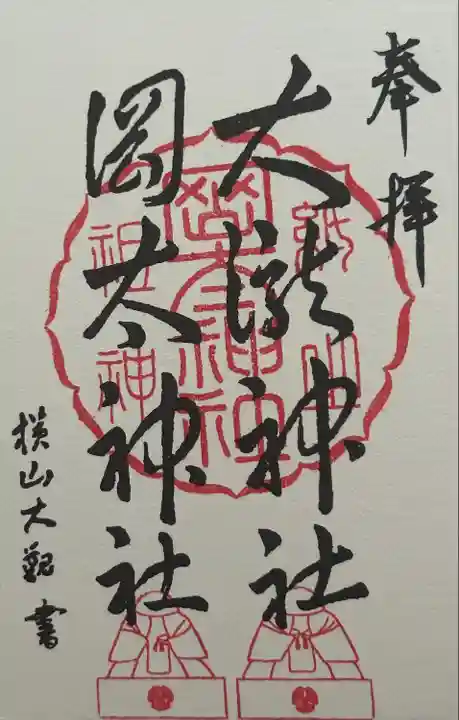 奉拝
大瀧神社
岡太神社
横山大観書
祖神